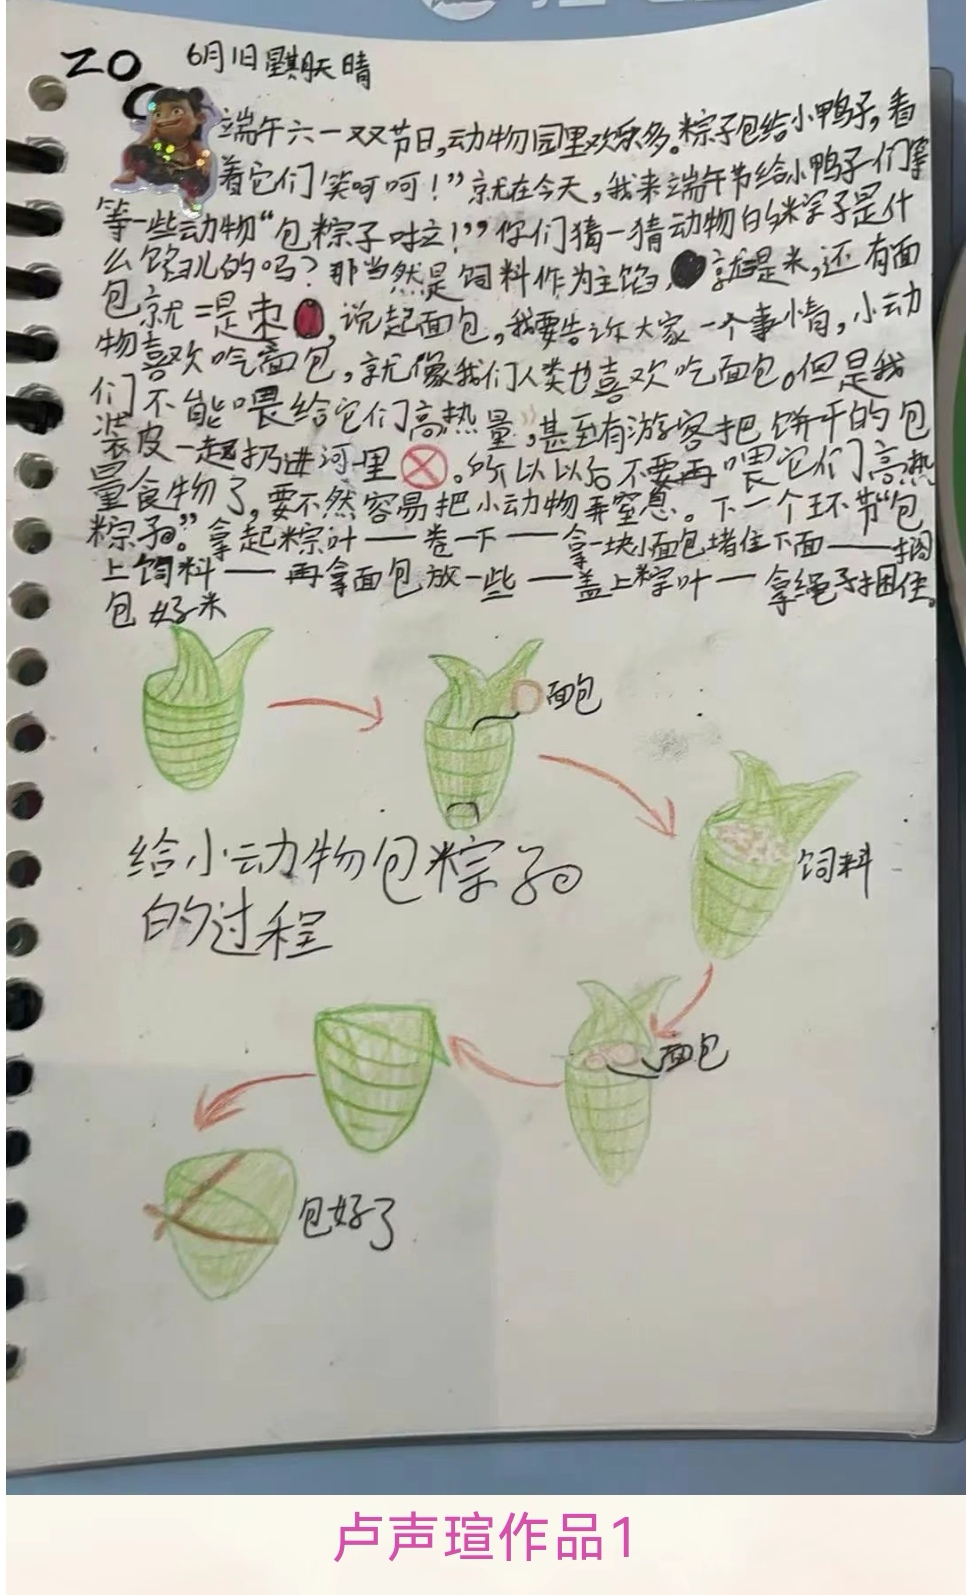 ZO
6月1日星期天晴
端午六一双节日,动物园里欢乐多。粽子包给小鸭子,看
着它们笑呵呵!”就在今天,我来端午节给小鸭子们等
等一些动物“包粽子啦!”你们猜一猜动物的粽子是什
么馅儿的吗?那当然是饲料作为主馅,就是米,还有面
包就是枣,说起面包,我要告诉大家一个事情,小动
物喜欢吃面包,就像我们人类也喜欢吃面包。但是我
们不能喂给它们高热量,甚至有游客把饼干的包
装皮一起扔进河里。所以以后不要再喂它们高热
量食物了,要不然容易把小动物弄窒息。下一个环节“包
粽子”。拿起粽叶——卷一下——拿一块小面包堵住下面——捆
上饲料——再拿面包放一些——盖上粽叶——拿绳子捆住。
包好米
面包
饲料
给小动物包粽子
的过程
面包
包好了
卢声瑄作品1